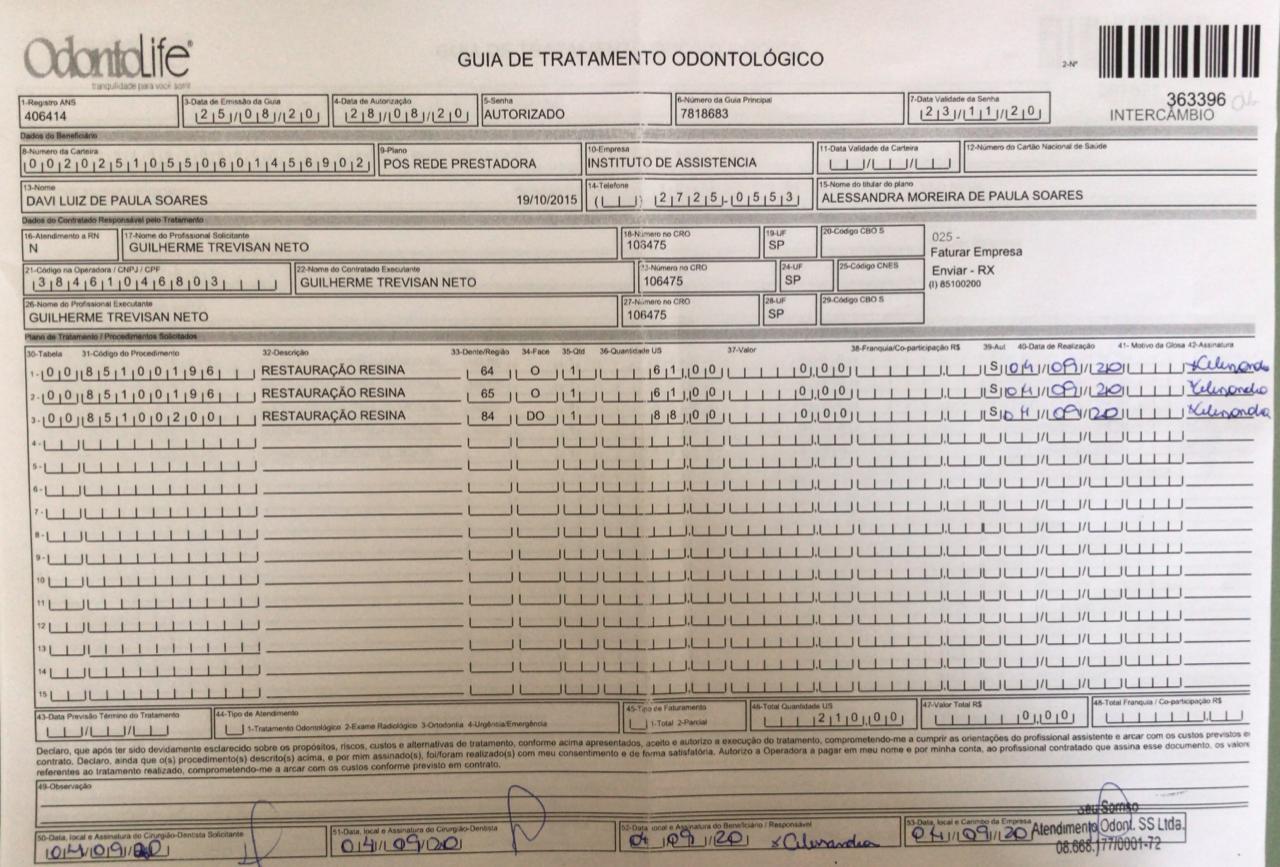 OdontoLife®
tranquilidade para você sorrir
GUIA DE TRATAMENTO ODONTOLÓGICO
2-Nº
363396
INTERCÂMBIO
1-Registro ANS
406414
3-Data de Emissão da Guia
25/08/20
4-Data de Autorização
28/08/20
5-Senha
AUTORIZADO
6-Número da Guia Principal
7818683
7-Data Validade da Senha
23/11/20
Dados do Beneficiário
8-Número da Carteira
00202510550601456902
9-Plano
POS REDE PRESTADORA
10-Empresa
INSTITUTO DE ASSISTENCIA
11-Data Validade da Carteira
12-Número do Cartão Nacional de Saúde
13-Nome
DAVI LUIZ DE PAULA SOARES 19/10/2015
14-Telefone
( ) 2725-0553
15-Nome do titular do plano
ALESSANDRA MOREIRA DE PAULA SOARES
Dados do Contratado Responsável pelo Tratamento
16-Atendimento a RN
N
17-Nome do Profissional Solicitante
GUILHERME TREVISAN NETO
18-Número no CRO
106475
19-UF
SP
20-Código CBO S
025 -
Faturar Empresa
Enviar - RX
(I) 85100200
21-Código na Operadora / CNPJ / CPF
38461046803
22-Nome do Contratado Executante
GUILHERME TREVISAN NETO
23-Número no CRO
106475
24-UF
SP
25-Código CNES
26-Nome do Profissional Executante
GUILHERME TREVISAN NETO
27-Número no CRO
106475
28-UF
SP
29-Código CBO S
Plano de Tratamento / Procedimentos Solicitados
30-Tabela 31-Código do Procedimento 32-Descrição 33-Dente/Região 34-Face 35-Qtd 36-Quantidade US 37-Valor 38-Franquia/Co-participação R$ 39-Aut 40-Data de Realização 41- Motivo da Glosa 42-Assinatura
1- 00 85100196 RESTAURAÇÃO RESINA 64 O 1 61,00 0,00 S 04/09/20
2- 00 85100196 RESTAURAÇÃO RESINA 65 O 1 61,00 0,00 S 04/09/20
3- 00 85100200 RESTAURAÇÃO RESINA 84 DO 1 88,00 0,00 S 04/09/20
4-
5-
6-
7-
8-
9-
10
11
12
13
14
15
43-Data Previsão Término do Tratamento
44-Tipo de Atendimento
1-Tratamento Odontológico 2-Exame Radiológico 3-Ortodontia 4-Urgência/Emergência
45-Tipo de Faturamento
1-Total 2-Parcial
46-Total Quantidade US
210,00
47-Valor Total R$
0,00
48-Total Franquia / Co-participação R$
Declaro, que após ter sido devidamente esclarecido sobre os propósitos, riscos, custos e alternativas de tratamento, conforme acima apresentados, aceito e autorizo a execução do tratamento, comprometendo-me a cumprir as orientações do profissional assistente e arcar com os custos previstos e
contrato. Declaro, ainda que o(s) procedimento(s) descrito(s) acima, e por mim assinado(s), foi/foram realizado(s) com meu consentimento e de forma satisfatória. Autorizo a Operadora a pagar em meu nome e por minha conta, ao profissional contratado que assina esse documento, os valores
referentes ao tratamento realizado, comprometendo-me a arcar com os custos conforme previsto em contrato.
49-Observação
50-Data, local e Assinatura do Cirurgião-Dentista Solicitante
04/09/20
51-Data, local e Assinatura do Cirurgião-Dentista
04/09/20
52-Data, local e Assinatura do Beneficiário / Responsável
04/09/20
53-Data, local e Carimbo da Empresa
04/09/20
Seu Sorriso
Atendimento Odont. SS Ltda.
08.668.177/0001-72